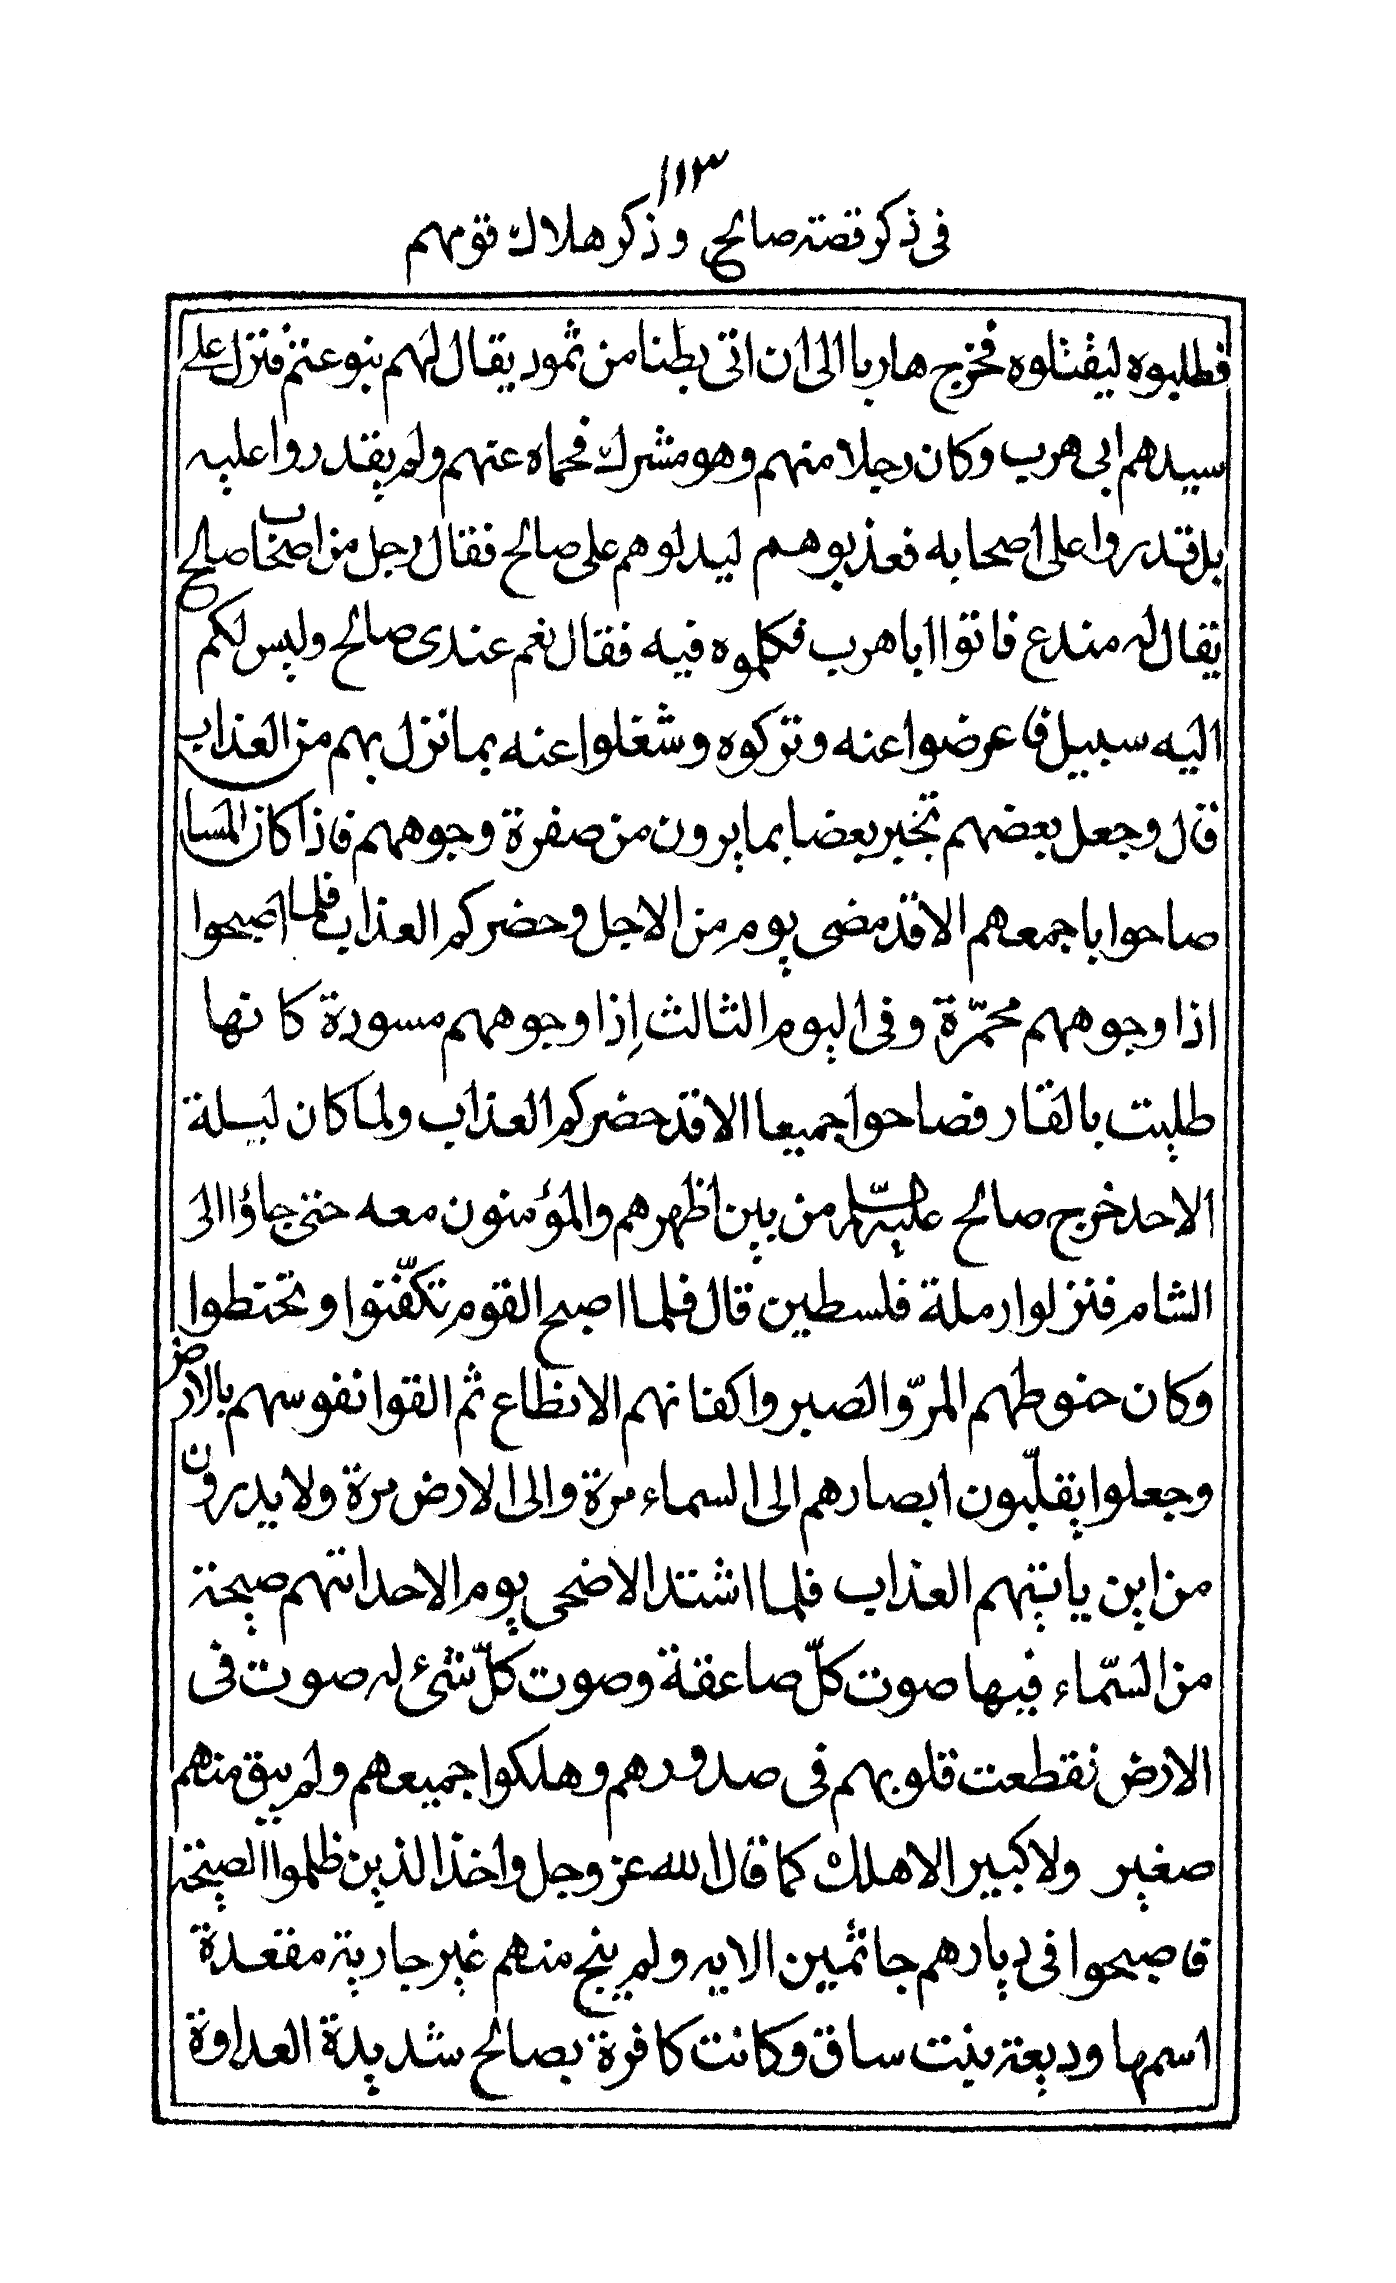 ١١٣
فى ذكر قصة صالح وذكر هلاك قومهم
فطلبوه ليقتلوه فخرج هاربا الى ان اتى بطنا من ثمود يقال لهم بنو عنم فنزل على
سيدهم ابى هرب وكان رجلا منهم وهو مشرك فحماه عنهم ولم يقدروا عليه
بل قدروا على اصحابه فعذبوهم ليدلوهم على صالح فقال رجل من اصحاب صالح
يقال له مندع فاتوا ابا هرب فكلموه فيه فقال نعم عندى صالح وليس لكم
اليه سبيل فاعرضوا عنه وتركوه وشغلوا عنه بما نزل بهم من العذاب
قال وجعل بعضهم تخبر بعضا بما يرون من صفرة وجوههم فاذا كان المسا
صاحوا باجمعهم الا قد مضى يوم من الاجل وحضركم العذاب فلما اصبحوا
اذا وجوههم محمّرة وفى اليوم الثالث اِذا وجوههم مسودة كانها
طليت بالقار فصاحوا جميعا الا قد حضركم العذاب ولما كان ليلة
الاحد خرج صالح عليه السّلم من بين اظهرهم والمؤمنون معه حتى جاؤا الى
الشام فنزلوا رملة فلسطين قال فلما اصبح القوم تكفّنوا وتحنطوا
وكان حنوطهم المرّ والصبر واكفانهم الانطاع ثم القوا نفوسهم بالارض
وجعلوا يقلّبون ابصارهم الى السماء مرة والى الارض مرة ولا يدرون
من اين ياتيهم العذاب فلما اشتد الاضحى يوم الاحد اتتهم صيحة
من السّماء فيها صوت كلّ صاعقة وصوت كلّ شئ له صوت فى
الارض فقطعت قلوبهم فى صدورهم وهلكوا جميعهم ولم يبق منهم
صغير ولا كبير الا هلك كما قال الله عز وجل واخذ الذين ظلموا الصيحة
فاصبحوا فى ديارهم جاثمين الايه ولم ينج منهم غير جارية مقعدة
اسمها وديعة بنت ساق وكانت كافرة بصالح شديدة العداوة